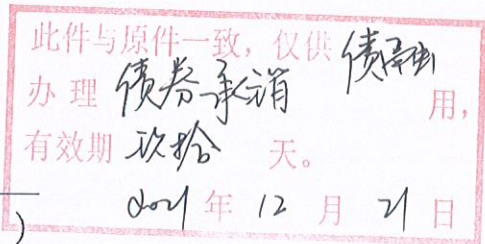 此件与原件一致，仅供
办理债券承销用，
有效期玖拾天。
2021年12月21日
)